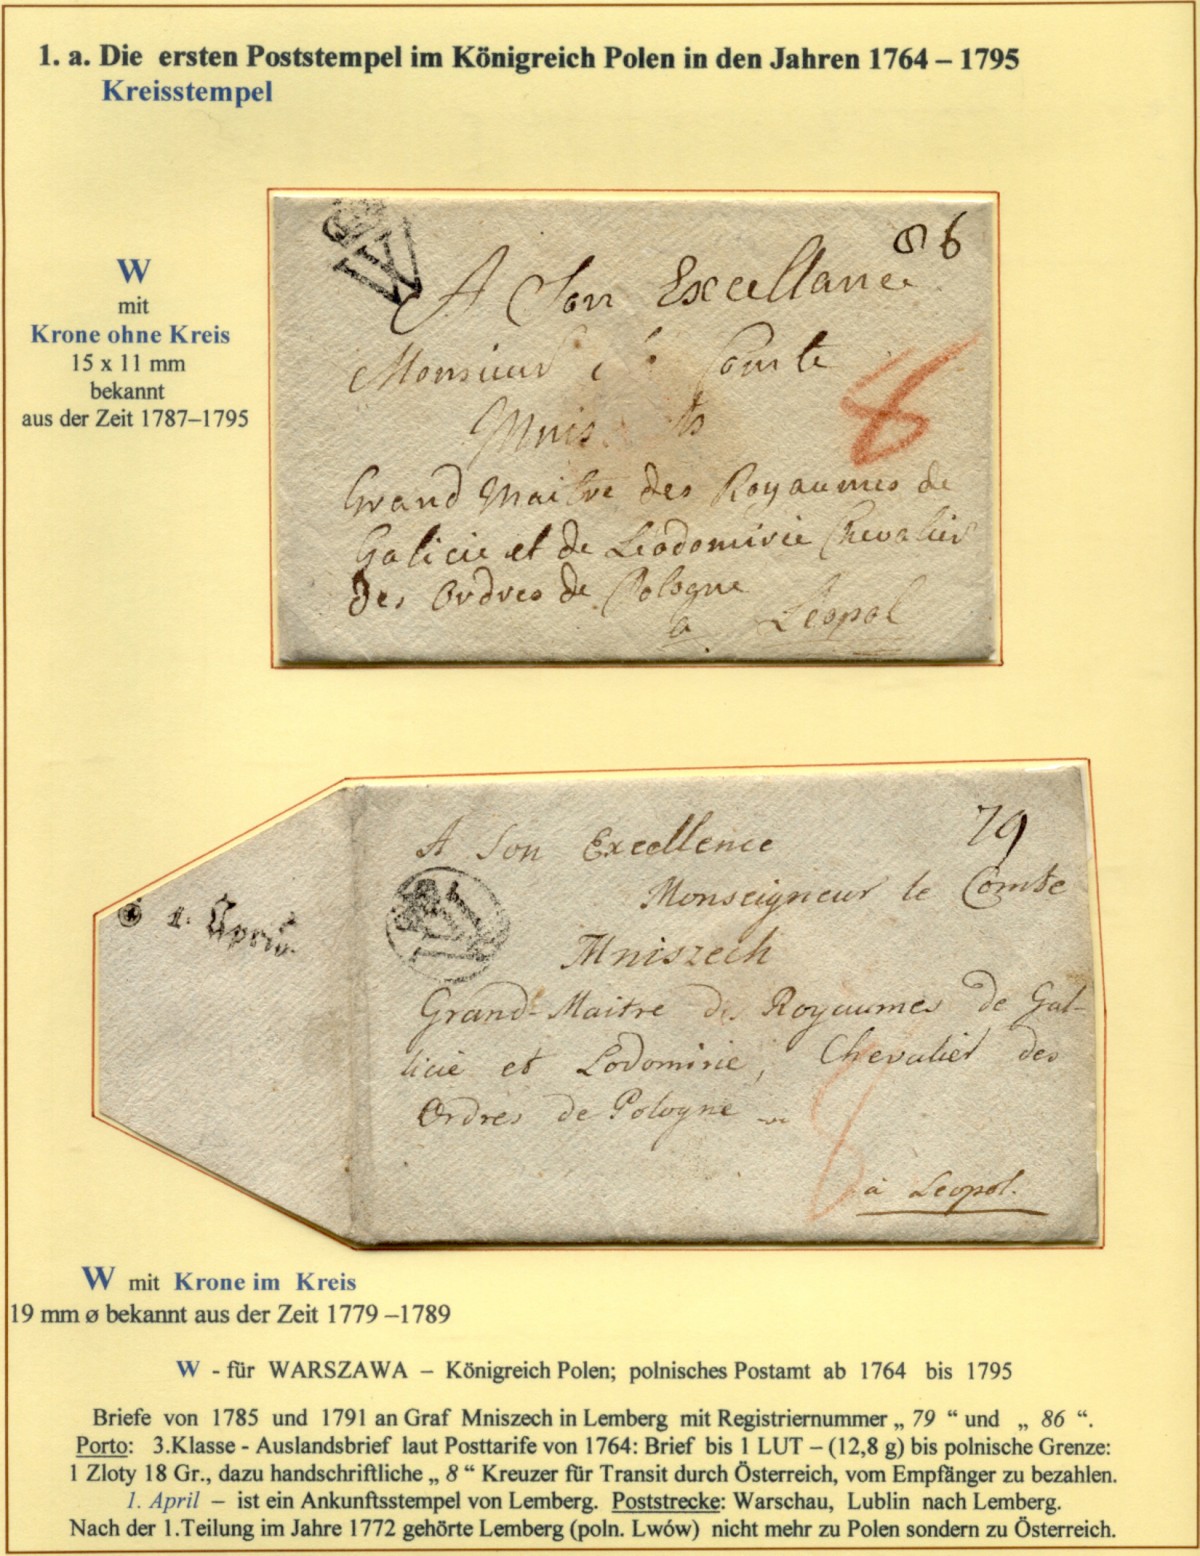 1. a. Die ersten Poststempel im Königreich Polen in den Jahren 1764 – 1795
Kreisstempel
W
mit
Krone ohne Kreis
15 x 11 mm
bekannt
aus der Zeit 1787–1795
W
86
A Son Excellance
Monsieur Comte
8
Grand Maitre des Royaumes de
Galicie et de Leodomirie Chevalier
des Ordres de Pologne
a Leopol
79
A Son Excellence
Monseigneur le Comte
Mniszech
Grand-Maitre des Royaumes de Gal-
licie et Lodomirie, Chevalier des
Ordres de Pologne
8
à Leopol.
1. April.
W
W mit Krone im Kreis
19 mm ø bekannt aus der Zeit 1779 –1789
W - für WARSZAWA – Königreich Polen; polnisches Postamt ab 1764 bis 1795
Briefe von 1785 und 1791 an Graf Mniszech in Lemberg mit Registriernummer „ 79 “ und „ 86 “.
Porto: 3.Klasse - Auslandsbrief laut Posttarife von 1764: Brief bis 1 LUT – (12,8 g) bis polnische Grenze:
1 Zloty 18 Gr., dazu handschriftliche „ 8 “ Kreuzer für Transit durch Österreich, vom Empfänger zu bezahlen.
1. April – ist ein Ankunftsstempel von Lemberg. Poststrecke: Warschau, Lublin nach Lemberg.
Nach der 1.Teilung im Jahre 1772 gehörte Lemberg (poln. Lwów) nicht mehr zu Polen sondern zu Österreich.